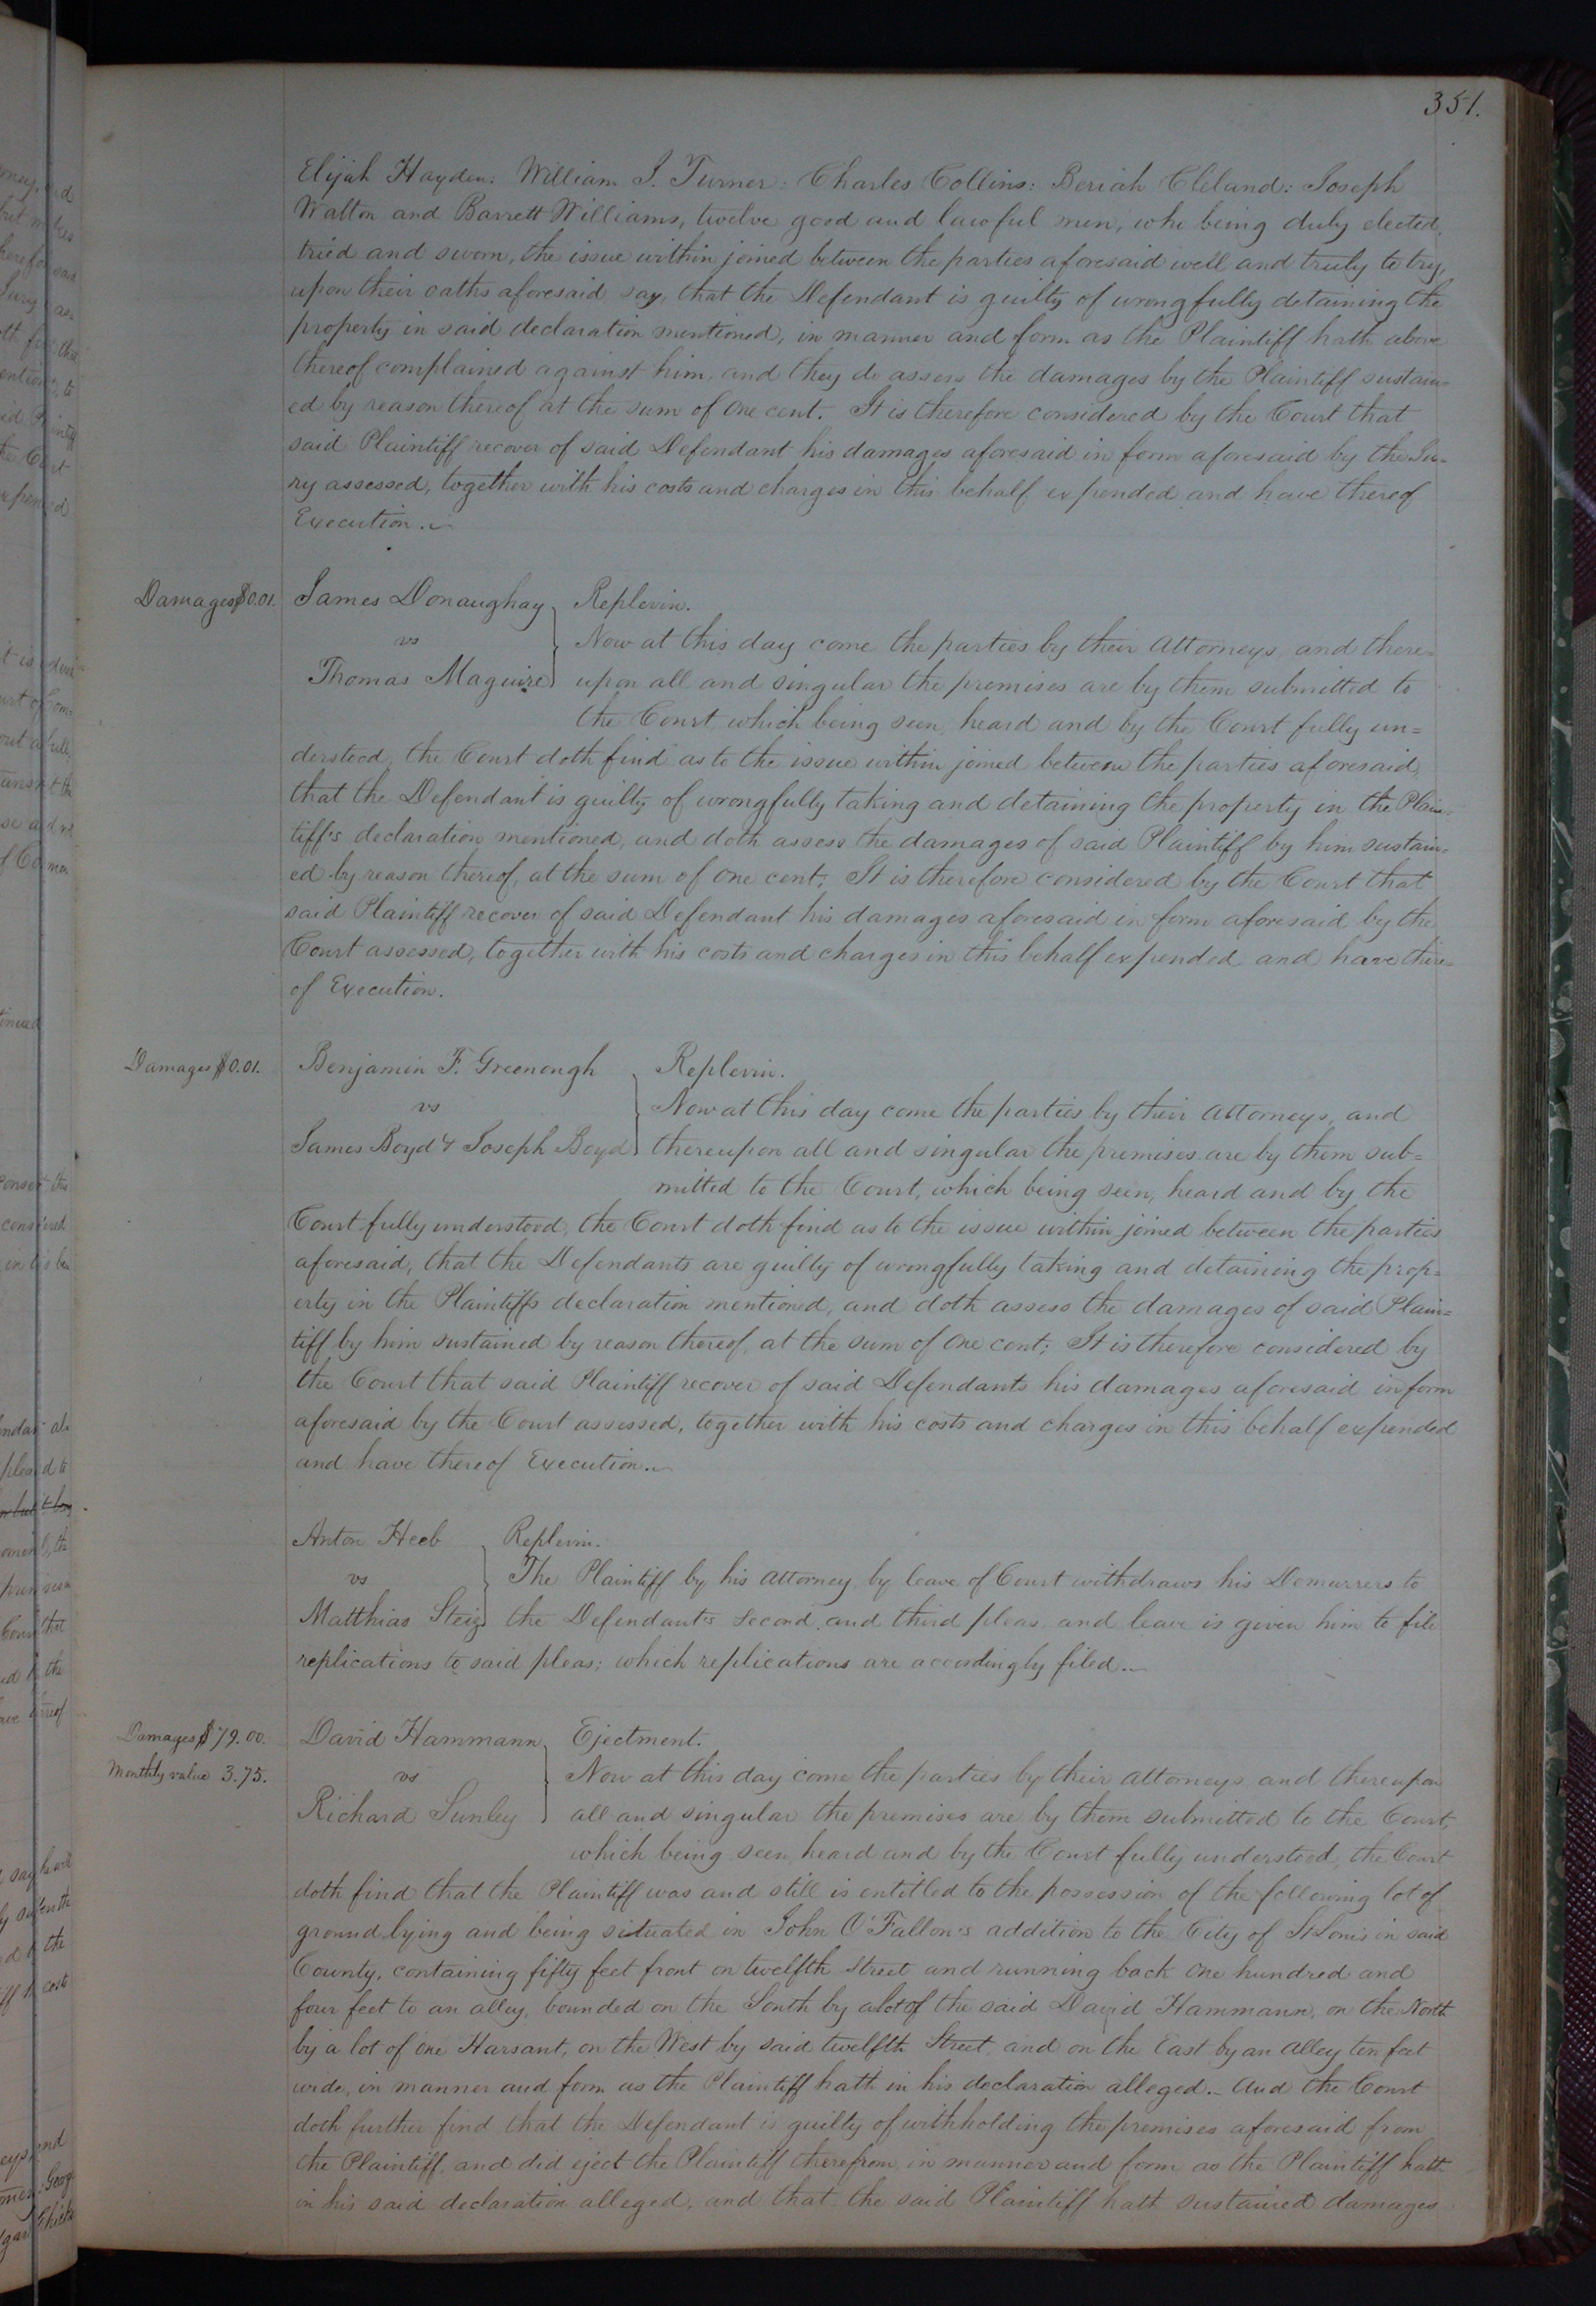 351.
Elijah Hayden: William I. Turner: Charles Collins: Beriah Cleland: Joseph
Walton and Barrett Williams, twelve good and lawful men, who being duly elected,
tried and sworn, the issue within joined between the parties aforesaid well and truly to try,
upon their oaths aforesaid say, that the Defendant is guilty of wrongfully detaining the
property in said declaration mentioned, in manner and form as the Plaintiff hath above
thereof complained against him, and they do assess the damages by the Plaintiff sustain=
ed by reason thereof at the sum of One cent. It is therefore considered by the Court that
said Plaintiff recover of said Defendant his damages aforesaid in form aforesaid by the Ju=
ry assessed, together with his costs and charges in this behalf expended and have thereof
Execution.
Damages $0.01. James Donaughay Replevin.
vs Now at this day come the parties by their Attorneys, and there=
Thomas Maguire upon all and singular the premises are by them submitted to
the Court, which being seen, heard and by the Court fully un=
derstood, the Court doth find as to the issue within joined between the parties aforesaid,
that the Defendant is guilty of wrongfully taking and detaining the property in the Plain=
tiff's declaration mentioned, and doth assess the damages of said Plaintiff by him sustain=
ed by reason thereof, at the sum of One cent; It is therefore considered by the Court that
said Plaintiff recover of said Defendant his damages aforesaid in form aforesaid by the
Court assessed, together with his costs and charges in this behalf expended and have there=
of Execution.
Damages $0.01. Benjamin F. Greenough Replevin.
vs Now at this day come the parties by their Attorneys, and
James Boyd & Joseph Boyd thereupon all and singular the premises are by them sub=
mitted to the Court, which being seen, heard and by the
Court fully understood, the Court doth find as to the issue within joined between the parties
aforesaid, that the Defendants are guilty of wrongfully taking and detaining the prop=
erty in the Plaintiffs declaration mentioned, and doth assess the damages of said Plain=
tiff by him sustained by reason thereof, at the sum of One cent; It is therefore considered by
the Court that said Plaintiff recover of said Defendants his damages aforesaid in form
aforesaid by the Court assessed, together with his costs and charges in this behalf expended
and have thereof Execution.
Anton Heeb Replevin.
vs The Plaintiff by his Attorney, by leave of Court withdraws his Demurrers to
Matthias Steiz the Defendant's second and third pleas, and leave is given him to file
replications to said pleas; which replications are accordingly filed.
Damages $79.00. David Hammann Ejectment.
Monthly value 3.75. vs Now at this day come the parties by their Attorneys, and thereupon
Richard Sunley all and singular the premises are by them submitted to the Court,
which being seen, heard and by the Court fully understood, the Court
doth find that the Plaintiff was and still is entitled to the possession of the following lot of
ground lying and being situated in John O'Fallon's addition to the City of St Louis in said
County, containing fifty feet front on twelfth Street and running back One hundred and
four feet to an alley, bounded on the South by a lot of the said David Hammann, on the North
by a lot of One Harsant, on the West by said twelfth Street, and on the East by an Alley ten feet
wide, in manner and form as the Plaintiff hath in his declaration alleged. And the Court
doth further find that the Defendant is guilty of withholding the premises aforesaid from
the Plaintiff, and did eject the Plaintiff therefrom in manner and form as the Plaintiff hath
in his said declaration alleged, and that the said Plaintiff hath sustained damages